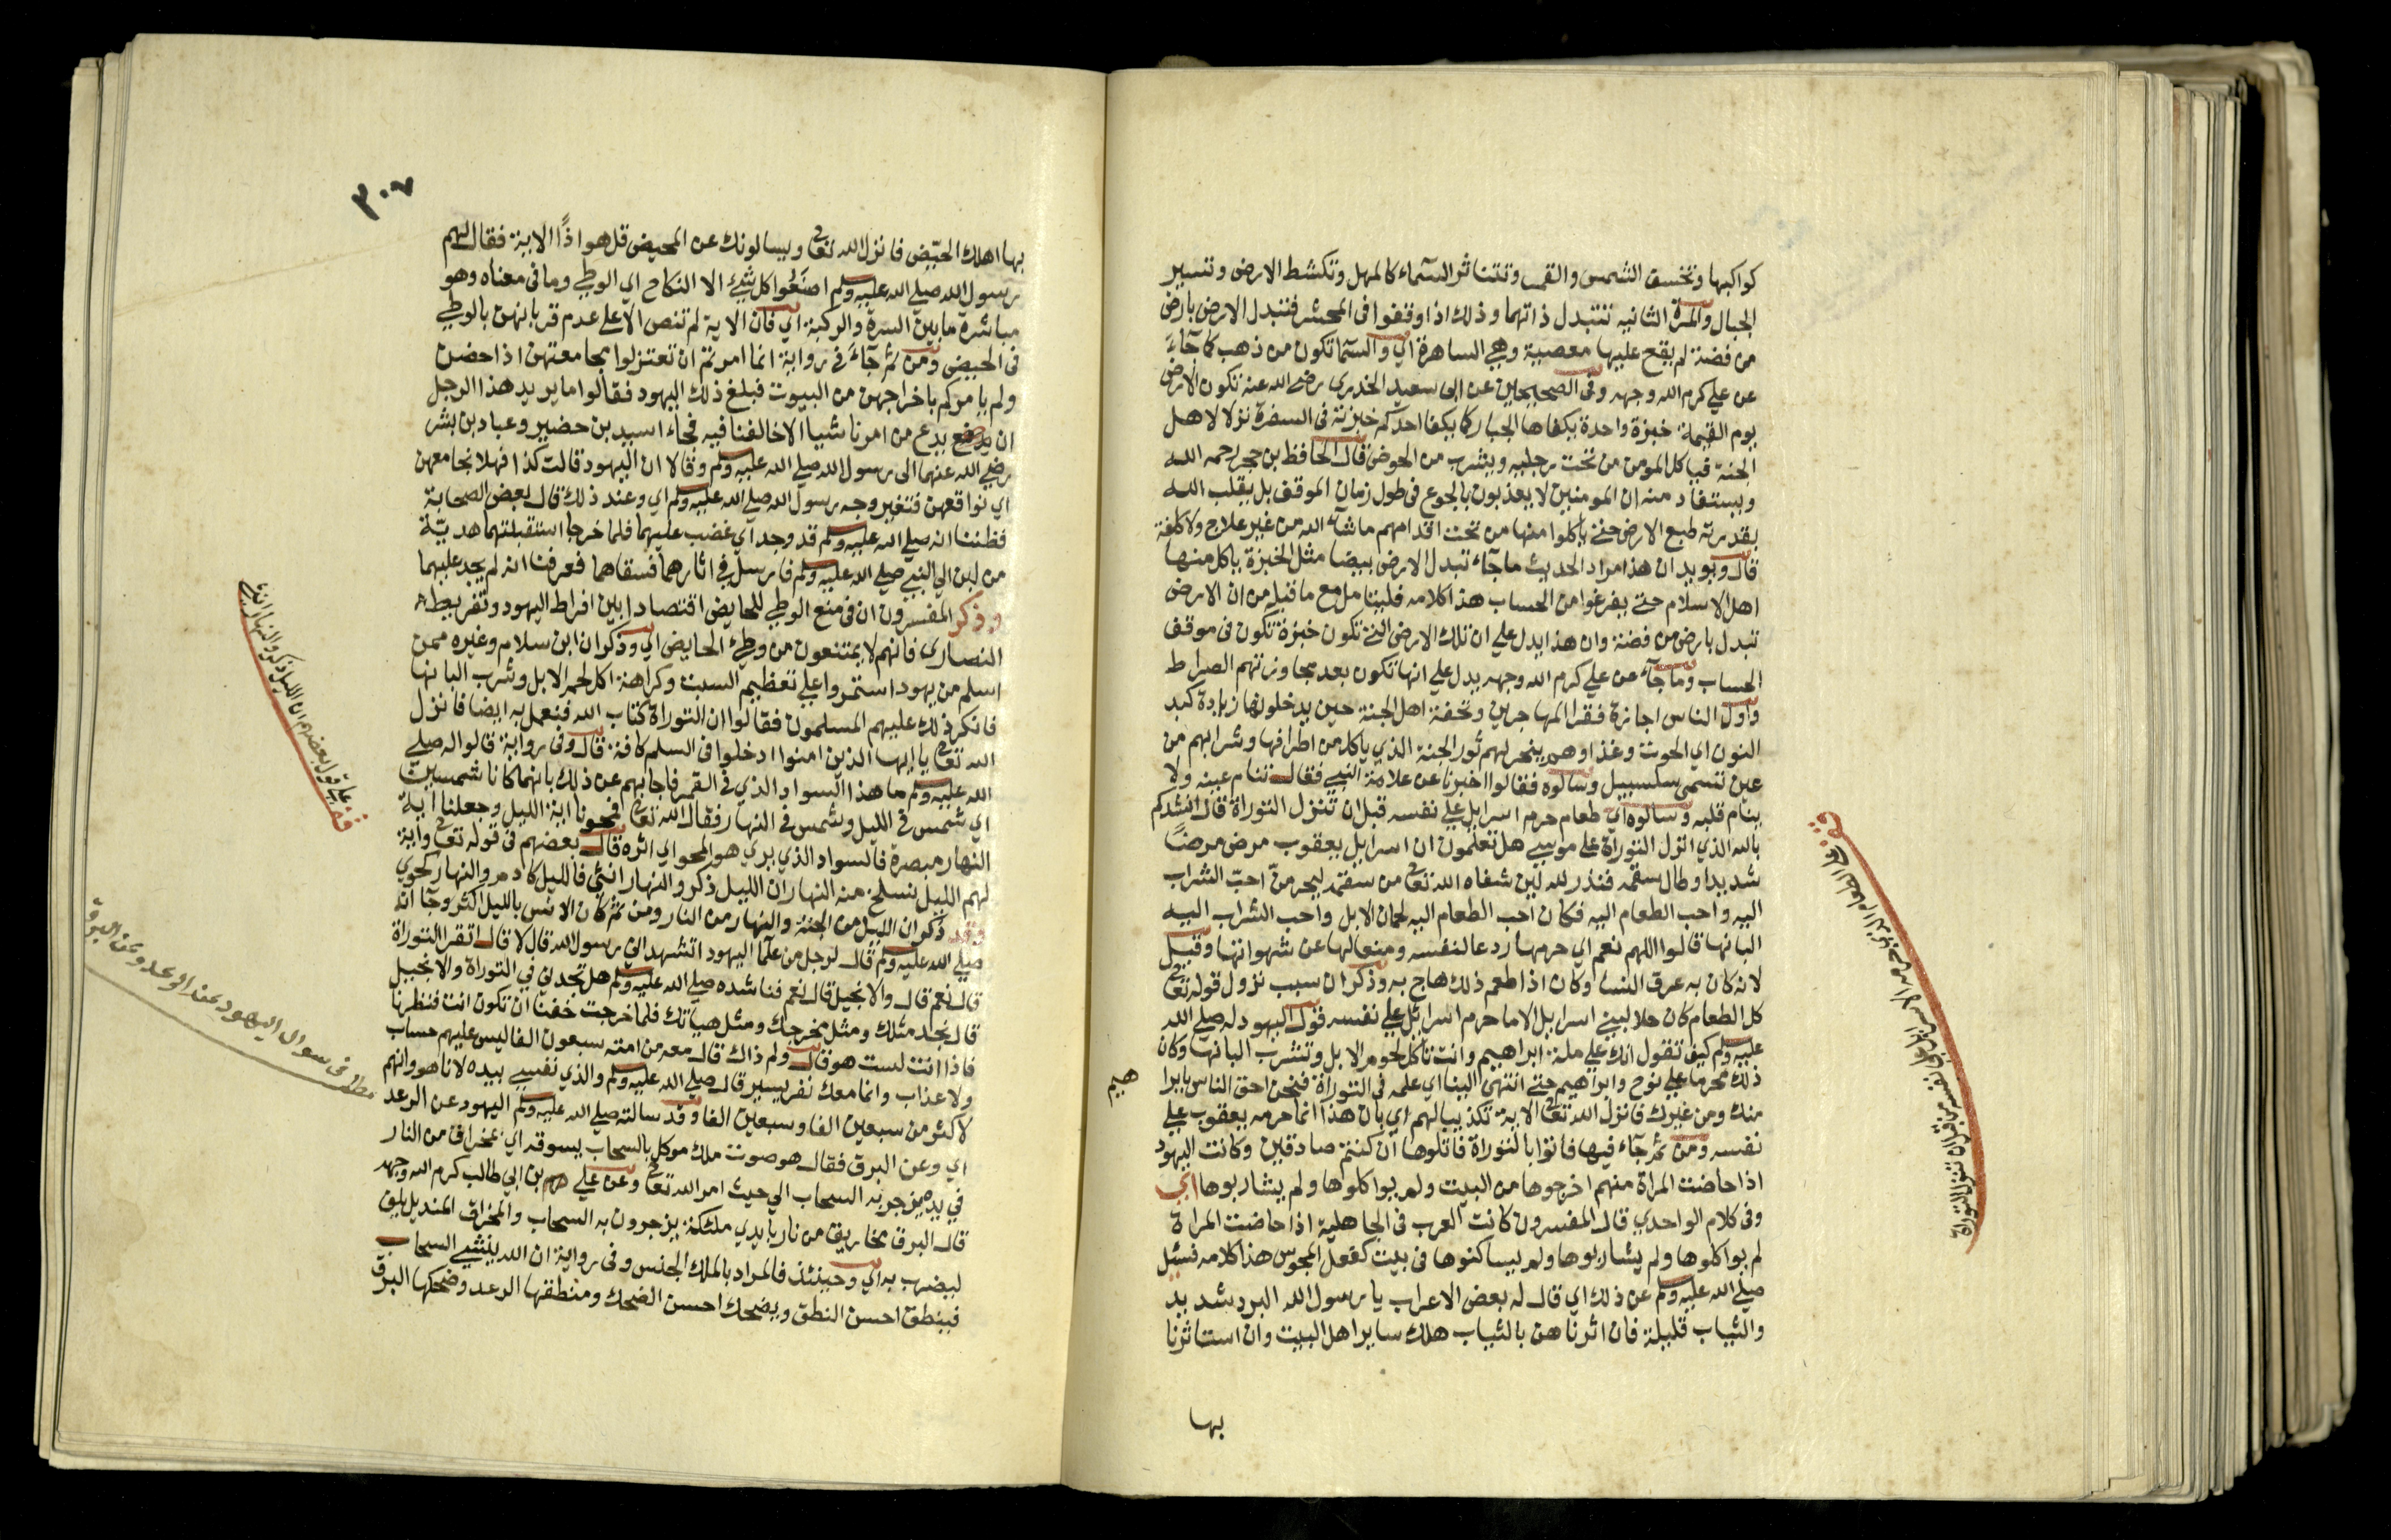 كواكبها وتخسف الشمس والقمر وتتناثر السماء كالمهل وتكشط الارض وتسير
الجبال والمرة الثانيه تتبدل ذاتهما وذلك اذا وقفوا فى المحشر فتبدل الارض بارض
من فضة لم يقع عليها معصية وهي الساهرة اي والسما تكون من ذهب كما جآء
عن علي كرم الله وجهه وفى الصحيحين عن ابى سعيد الخدري رضي الله عنه تكون الارض
يوم القيمة خبزة واحدة يكفاها الجبار كما يكفا احدكم خبزته فى السفرة نزلا لاهل
الجنة فياكل المومن من تحت رجليه ويشرب من الحوض قال الحافظ بن حجر رحمه الله
ويستفاد منه ان المومنين لا يعذبون بالجوع فى طول زمان الموقف بل يقلب الله
بقدرته طبع الارض حتى ياكلوا منها من تحت اقدامهم ماشآء الله من غير علاج ولا كلفة
قال ويويد ان هذا مراد الحديث ماجآء تبدل الارض بيضا مثل الخبزة ياكل منها
اهل الاسلام حتى يفرغوا من الحساب هذا كلامه فليتامل مع ما قبله من ان الارض
تبدل بارض من فضة وان هذا يدل علي ان تلك الارض التى تكون خبزة تكون فى موقف
الحساب وما جآء عن علي كرم الله وجهه يدل علي انها تكون بعد مجاوزتهم الصراط
واول الناس اجازة فقرا المهاجرين وتحفة اهل الجنة حين يدخلونها زيادة كبد
النون اي الحوت وغذاوهم ينحر لهم ثور الجنة الذي ياكل من اطرافها وشرابهم من
عين تسمى سلسبيل وسالوه فقالوا اخبرنا عن علامة النبي فقال تنام عينه ولا
ينام قلبه وسالوه اي طعام حرم اسرايل علي نفسه قبل ان تنزل التوراة قال انشدكم
بالله الذي انزل التوراة علي موسي هل تعلمون ان اسرايل يعقوب مرض مرضًا
شديدا وطال سقمه فنذر لله لين شفاه الله تعالى من سقمه ليحرمن احب الشراب
اليه واحب الطعام اليه فكان احب الطعام اليه لحمان الابل واحب الشراب اليه
البانها قالوا اللهم نعم اي حرمها ردعا لنفسه ومنعا لها عن شهواتها وقيل
لانه كان به عرق النسا وكان اذا طعم ذلك هاج به وذكر ان سبب نزول قوله تعالى
كل الطعام كان حلا لبني اسرايل الا ما حرم اسرائل علي نفسه قول اليهود له صلي الله
عليه وسلم كيف تقول انك علي ملة ابراهيم وانت تاكل لحوم الابل وتشرب البانها وكان
ذلك محرما علي نوح وابراهيم حتى انتهى الينا اي علمه فى التوراة فنحن احق الناس بابرا
هيم
منك ومن غيرك فانزل الله تعالى الاية تكذيبا لهم اي بان هذا انما حرمه يعقوب علي
نفسه ومن ثم جآء فيها فاتوا بالتوراة فاتلوها ان كنتم صادقين وكانت اليهود
اذا حاضت المراة منهم اخرجوها من البيت ولم يواكلوها ولم يشاربوها اي
وفى كلام الواحدي قال المفسرون كانت العرب فى الجاهلية اذا حاضت المراة
لم يواكلوها ولم يشاربوها ولم يساكنوها فى بيت كفعل المجوس هذا كلامه فسئل
صلي الله عليه وسلم عن ذلك اي قال له بعض الاعراب يا رسول الله البرد شديد
والثياب قليلة فان اثرناهن بالثياب هلك ساير اهل البيت وان استاثرنا
بها
قف على الطعام الذي حرمه الاسرايل على نفسه من قبل ان تنزل التوراة
٣٠٧
بها اهلك الحيّض فانزل الله تعالى ويسالونك عن المحيض قل هو اذًا الاية فقال لهم
رسول الله صلي الله عليه وسلم اصنعوا كل شيئ الا النكاح اي الوطي وما فى معناه وهو
مباشرة مابين السرة والركبة اي فان الاية لم تنص الا علي عدم قربانهن بالوطي
فى الحيض ومن ثم جآء فى رواية انما امرتم ان تعتزلوا مجامعتهن اذا حضن
ولم يامركم باخراجهن من البيوت فبلغ ذلك اليهود فقالوا ما يريد هذا الرجل
ان يدع من امرنا شيا الا خالفنا فيه فجاء اسيد بن حضير وعباد بن بشر
رضي الله عنهما الى رسول الله صلي الله عليه وسلم وقالا ان اليهود قالت كذا فهلا نجامعهن
اي نواقعهن فتغير وجه رسول الله صلي الله عليه وسلم اي وعند ذلك قال بعض الصحابة
فظننا انه صلي الله عليه وسلم قد وجد اي غضب عليهما فلما خرجا استقبلتهما هديّة
من لبن الي النبي صلي الله عليه وسلم فارسل في اثارهما فسقاهما فعرفنا انه لم يجد عليهما
وذكر المفسرون ان فى منع الوطي للحايض اقتصادا بين افراط اليهود وتفريط
النصارى فانهم لا يمتنعون من وطئ الحايض اي وذكر ان ابن سلام وغيره ممن
اسلم من يهود استمروا علي تعظيم السبت وكراهة اكل لحم الابل وشرب البانها
فانكر ذلك عليهم المسلمون فقالوا ان التوراة كتاب الله فنعمل به ايضا فانزل
الله تعالى يا ايها الذين امنوا ادخلوا فى السلم كافة قال وفى رواية قالوا له صلي
الله عليه وسلم ما هذا السواد الذي فى القمر فاجابهم عن ذلك بانهما كانا شمسين
اي شمس فى الليل وشمس فى النهار فقال الله تعالى فمحونا اية الليل وجعلنا اية
النهار مبصرة فالسواد الذي يري هو المحو اي اثره قال بعضهم فى قوله تعالى واية
لهم الليل نسلخ منه النهار ان الليل ذكر والنهار انثي فالليل كادم والنهار كحوي
وقد ذكر ان الليل من الجنة والنهار من النار ومن ثم كان الانس بالليل اكثر وجآ انه
صلي الله عليه وسلم قال لرجل من علما اليهود اتشهد اني رسول الله قال لا قال اتقرا التوراة
قال نعم قال والانجيل قال نعم فناشده صلي الله عليه وسلم هل تجدني في التوراة والانجيل
قال نجد مثلك ومثل مخرجك ومثل هياتك فلما خرجت خفنا ان تكون انت فنظرنا
فاذا انت لست هو قال ولم ذاك قال معه من امته سبعون الفا ليس عليهم حساب
ولا عذاب وانما معك نفر يسير قال صلي الله عليه وسلم والذي نفسي بيده لانا هو وانهم
لاكثر من سبعين الفا وسبعين الفا وقد سالته صلي الله عليه وسلم اليهود عن الرعد
اي وعن البرق فقال هو صوت ملك موكل بالسحاب يسوقه اي بمخراق من النار
في يده يزجر به السحاب الي حيث امر الله تعالى وعن علي بن ابي طالب كرم الله وجهه
قال البرق مخاريق من نار بايدي ملئكة يزجرون به السحاب والمخراق المنديل يلق
ليضرب به اي وحينئذ فالمراد بالملك الجنس وفى رواية ان الله ينشئي السحاب
فينطق احسن النطق ويضحك احسن الضحك ومنطقها الرعد وضحكها البرق
قف على قول بعضهم ان الليل ذكر والنهار انثي
مطلب فى سوال اليهود عن الرعد وعن البرق